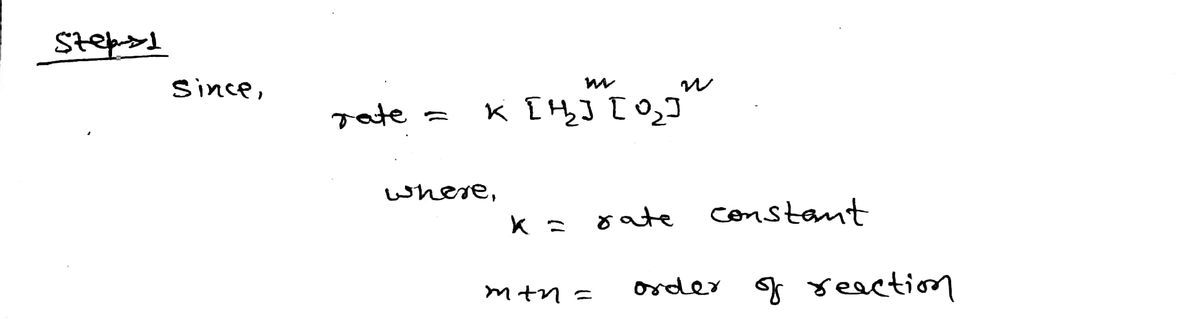 Step→1
Since,
rate = K [H₂]ᵐ [O₂]ⁿ
where,
K = rate constant
m+n = order of reaction